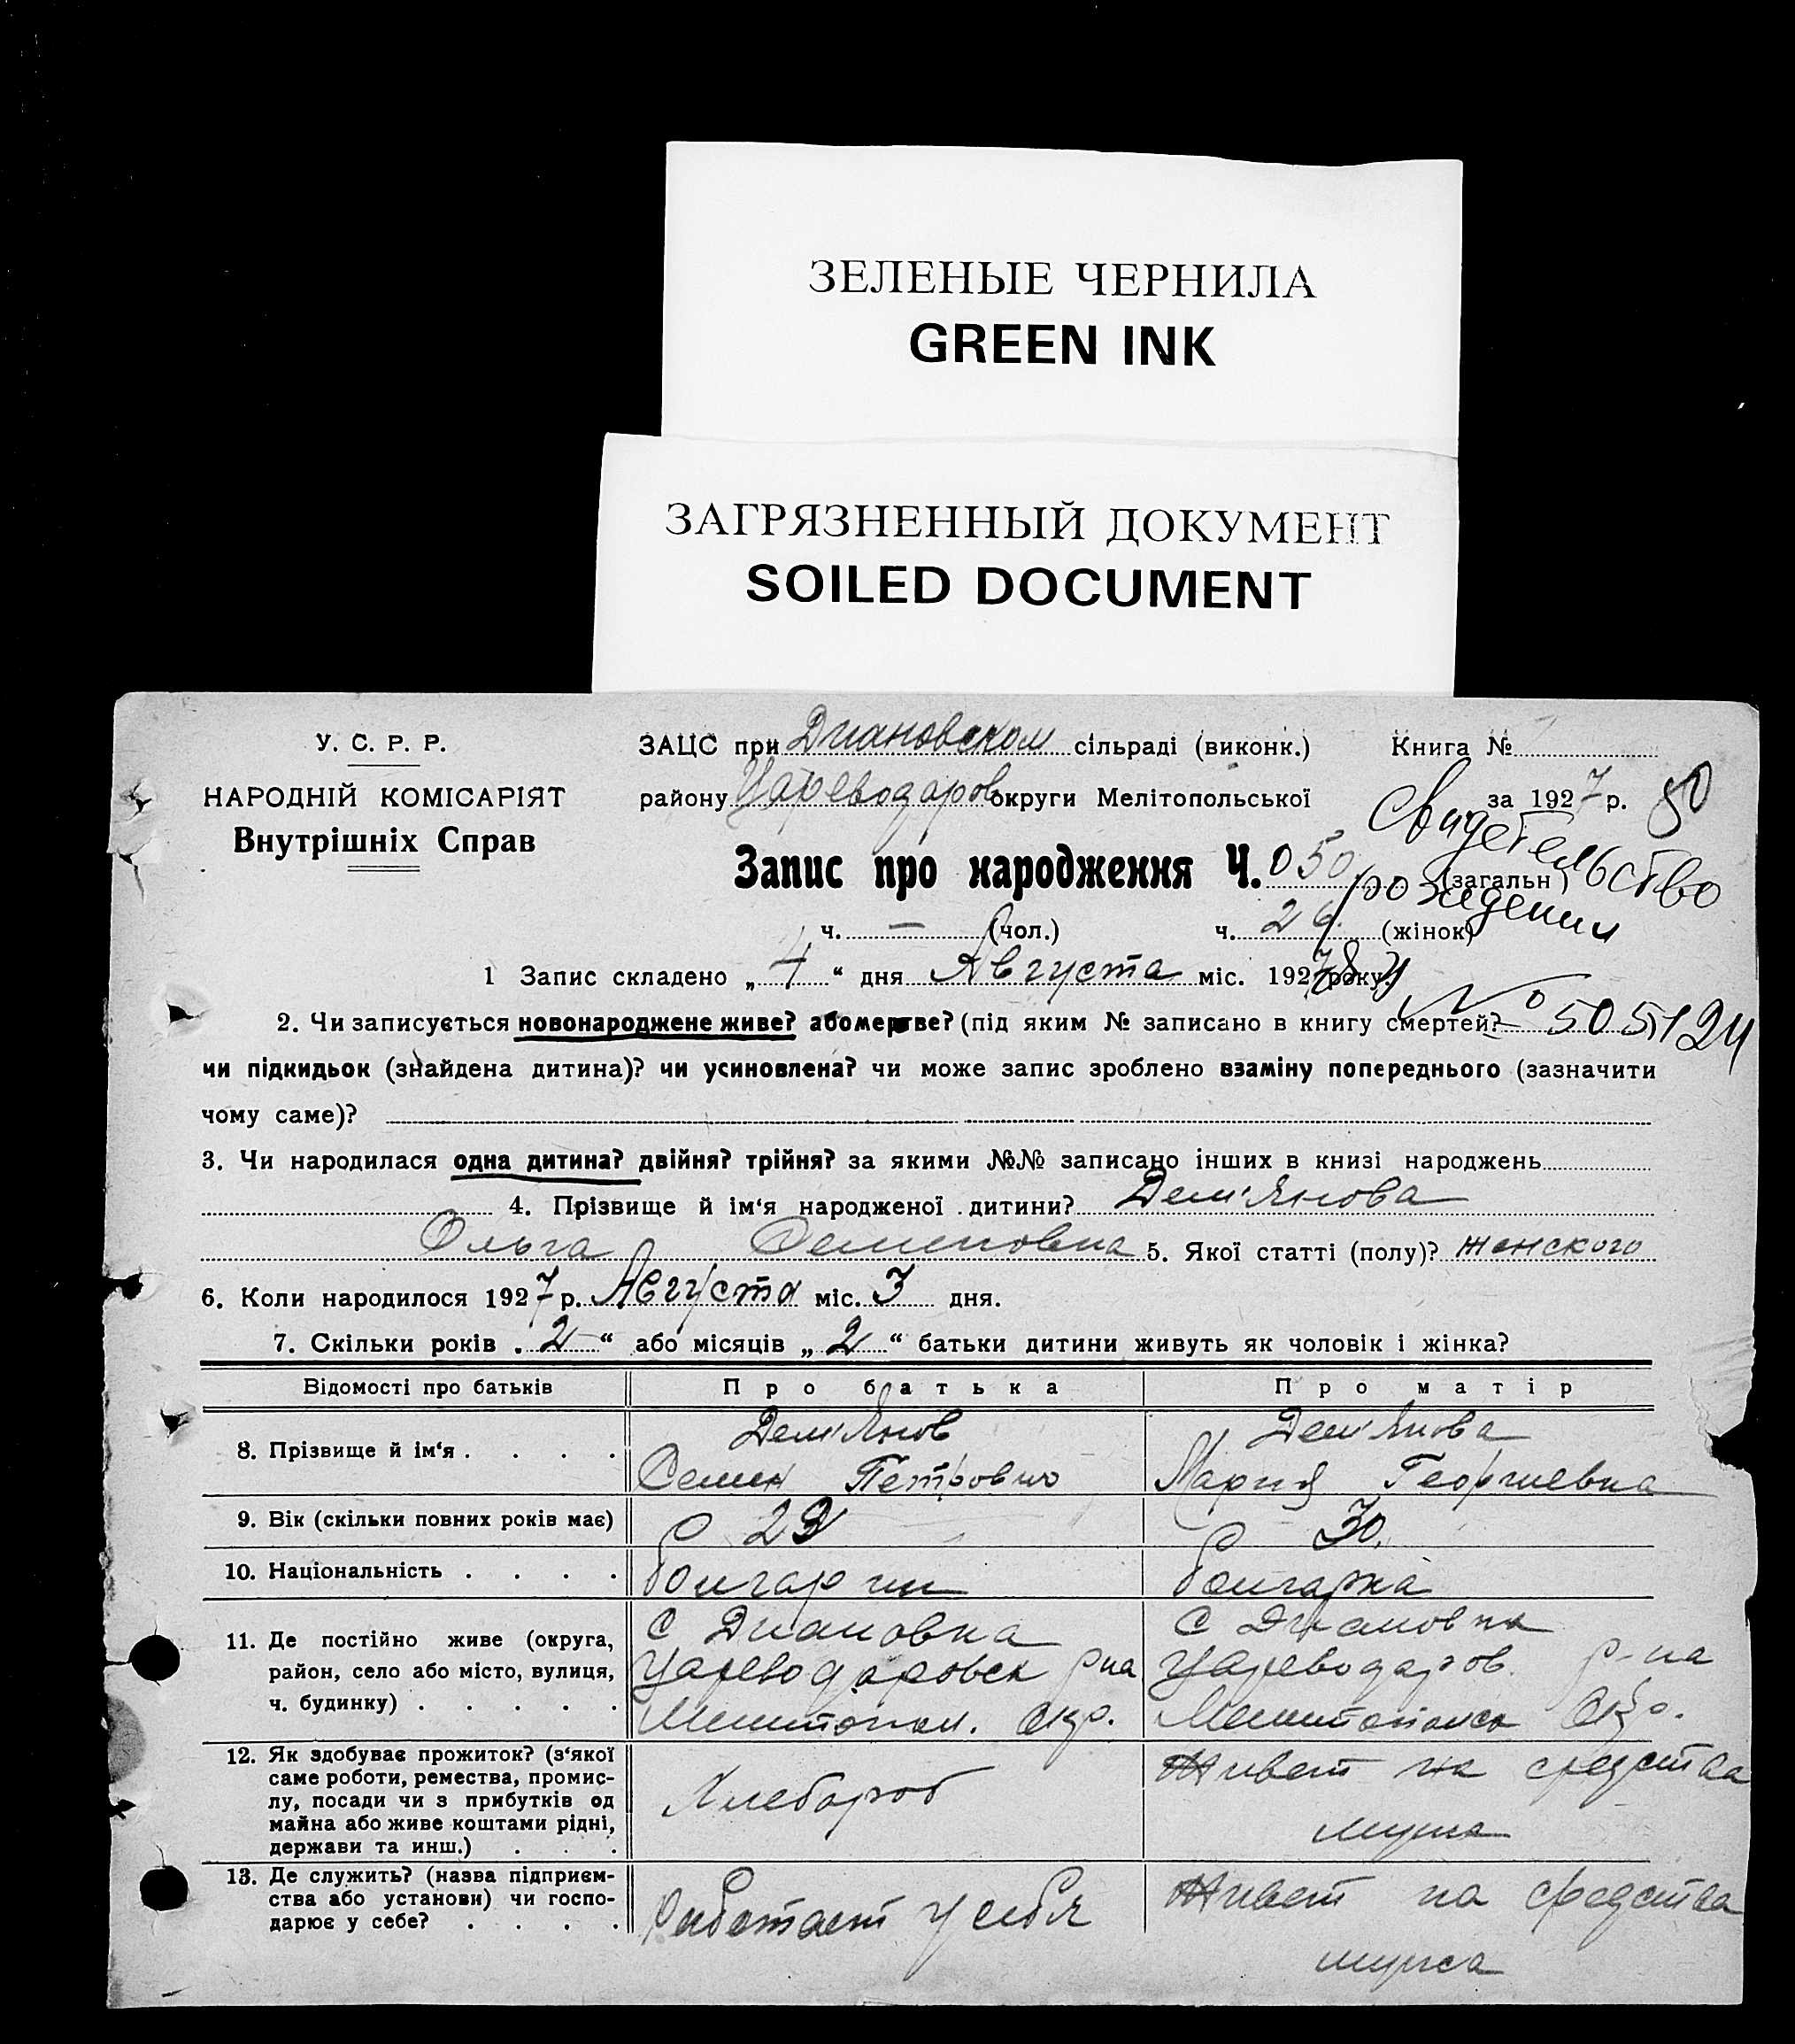 ЗЕЛЕНЫЕ ЧЕРНИЛА
GREEN INK
ЗАГРЯЗНЕННЫЙ ДОКУМЕНТ
SOILED DOCUMENT
У. С. Р. Р.
НАРОДНІЙ КОМІСАРІЯТ
Внутрішніх Справ
ЗАЦС при Диановском сільраді (виконк.) Книга №
району Цареводаров округи Мелітопольської за 1927 р. 50
Свидетельство
Запис про народження Ч. 050 (загальн)
рождении
ч. — (чол.) ч. 26 (жінок)
1 Запис складено „ 4 “ дня Августа міс. 1927 року.
№ 505124
2. Чи записується новонароджене живе? або мертве? (під яким № записано в книгу смертей?
чи підкидьок (знайдена дитина)? чи усиновлена? чи може запис зроблено взаміну попереднього (зазначити
чому саме)?
3. Чи народилася одна дитина? двійня? трійня? за якими №№ записано інших в книзі народжень
4. Прізвище й ім‘я народженої дитини? Дем'янова
Ольга Семеновна 5. Якої статті (полу)? женского
6. Коли народилося 1927 р. Августа міс. 3 дня.
7. Скільки років „ 2 “ або місяців „ 2 “ батьки дитини живуть як чоловік і жінка?
Відомості про батьків Про батька Про матір
8. Прізвище й ім‘я . . . . Дем'янов Дем'янова
Семен Петрович Мария Георгиевна
9. Вік (скільки повних років має) 29 30.
10. Національність . . . . болгарин болгарка
11. Де постійно живе (округа, с Диановка с Диановка
район, село або місто, вулиця, Цареводаровск р-на Цареводаров. р-на
ч. будинку) . . . . . Мелитопол. Окр. Мелитопольс Окр.
12. Як здобуває прожиток? (з‘якої Живет на средства
саме роботи, ремества, промис-
лу, посади чи з прибутків од Хлебороб
майна або живе коштами рідні, мужа
держави та инш.) . . .
13. Де служить? (назва підприєм- Живет на средства
ства або установи) чи госпо- Работает у себя
дарює у себе? . . . .
мужа